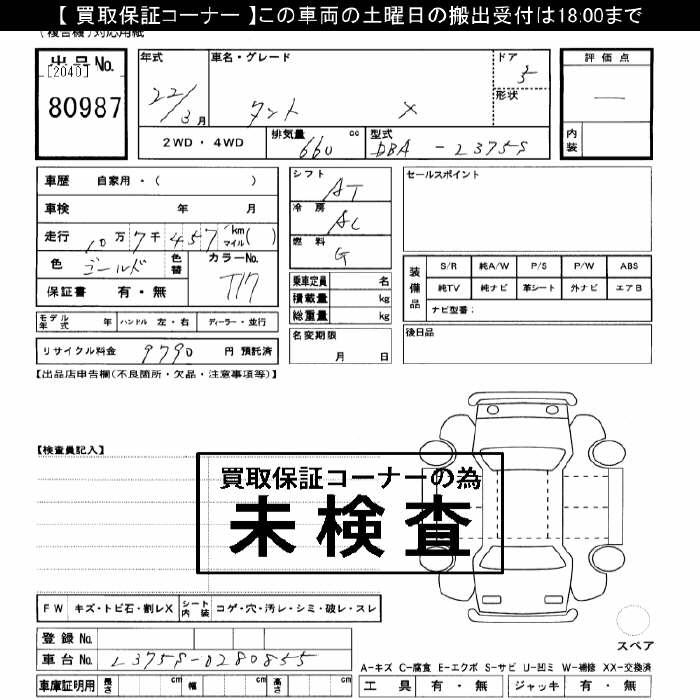 【 買取保証コーナー 】この車両の土曜日の搬出受付は18:00まで
(複合機)対応用紙
出品No.
[2040]
80987
年式
22/3月
車名・グレード
タント X
ドア
5
形状
評価点
—
内装
2WD・4WD
排気量 660 cc
型式 DBA - L375S
車歴 自家用・( )
車検 年 月
走行 10万7千457 km マイル ( )
色 ゴールド
色替
カラーNo.
T17
保証書 有・無
モデル年式 年 ハンドル 左・右 ディーラー・並行
リサイクル料金 9790 円 預託済
シフト AT
冷房 AC
燃料 G
乗車定員 名
積載量 kg
総重量 kg
名変期限
月 日
セールスポイント
装備品
S/R 純A/W P/S P/W ABS
純TV 純ナビ 革シート 外ナビ エアB
ナビ型番:
後日品
【出品店申告欄(不良箇所・欠品・注意事項等)】
【検査員記入】
買取保証コーナーの為
未検査
FW キズ・トビ石・割レX シート内装 コゲ・穴・汚レ・シミ・破レ・スレ
登録No.
車台No. L375S-0280855
車庫証明用 長さ cm 幅 cm 高さ cm
スペア
A-キズ C-腐食 E-エクボ S-サビ U-凹ミ W-補修 XX-交換済
工具 有・無 ジャッキ 有・無